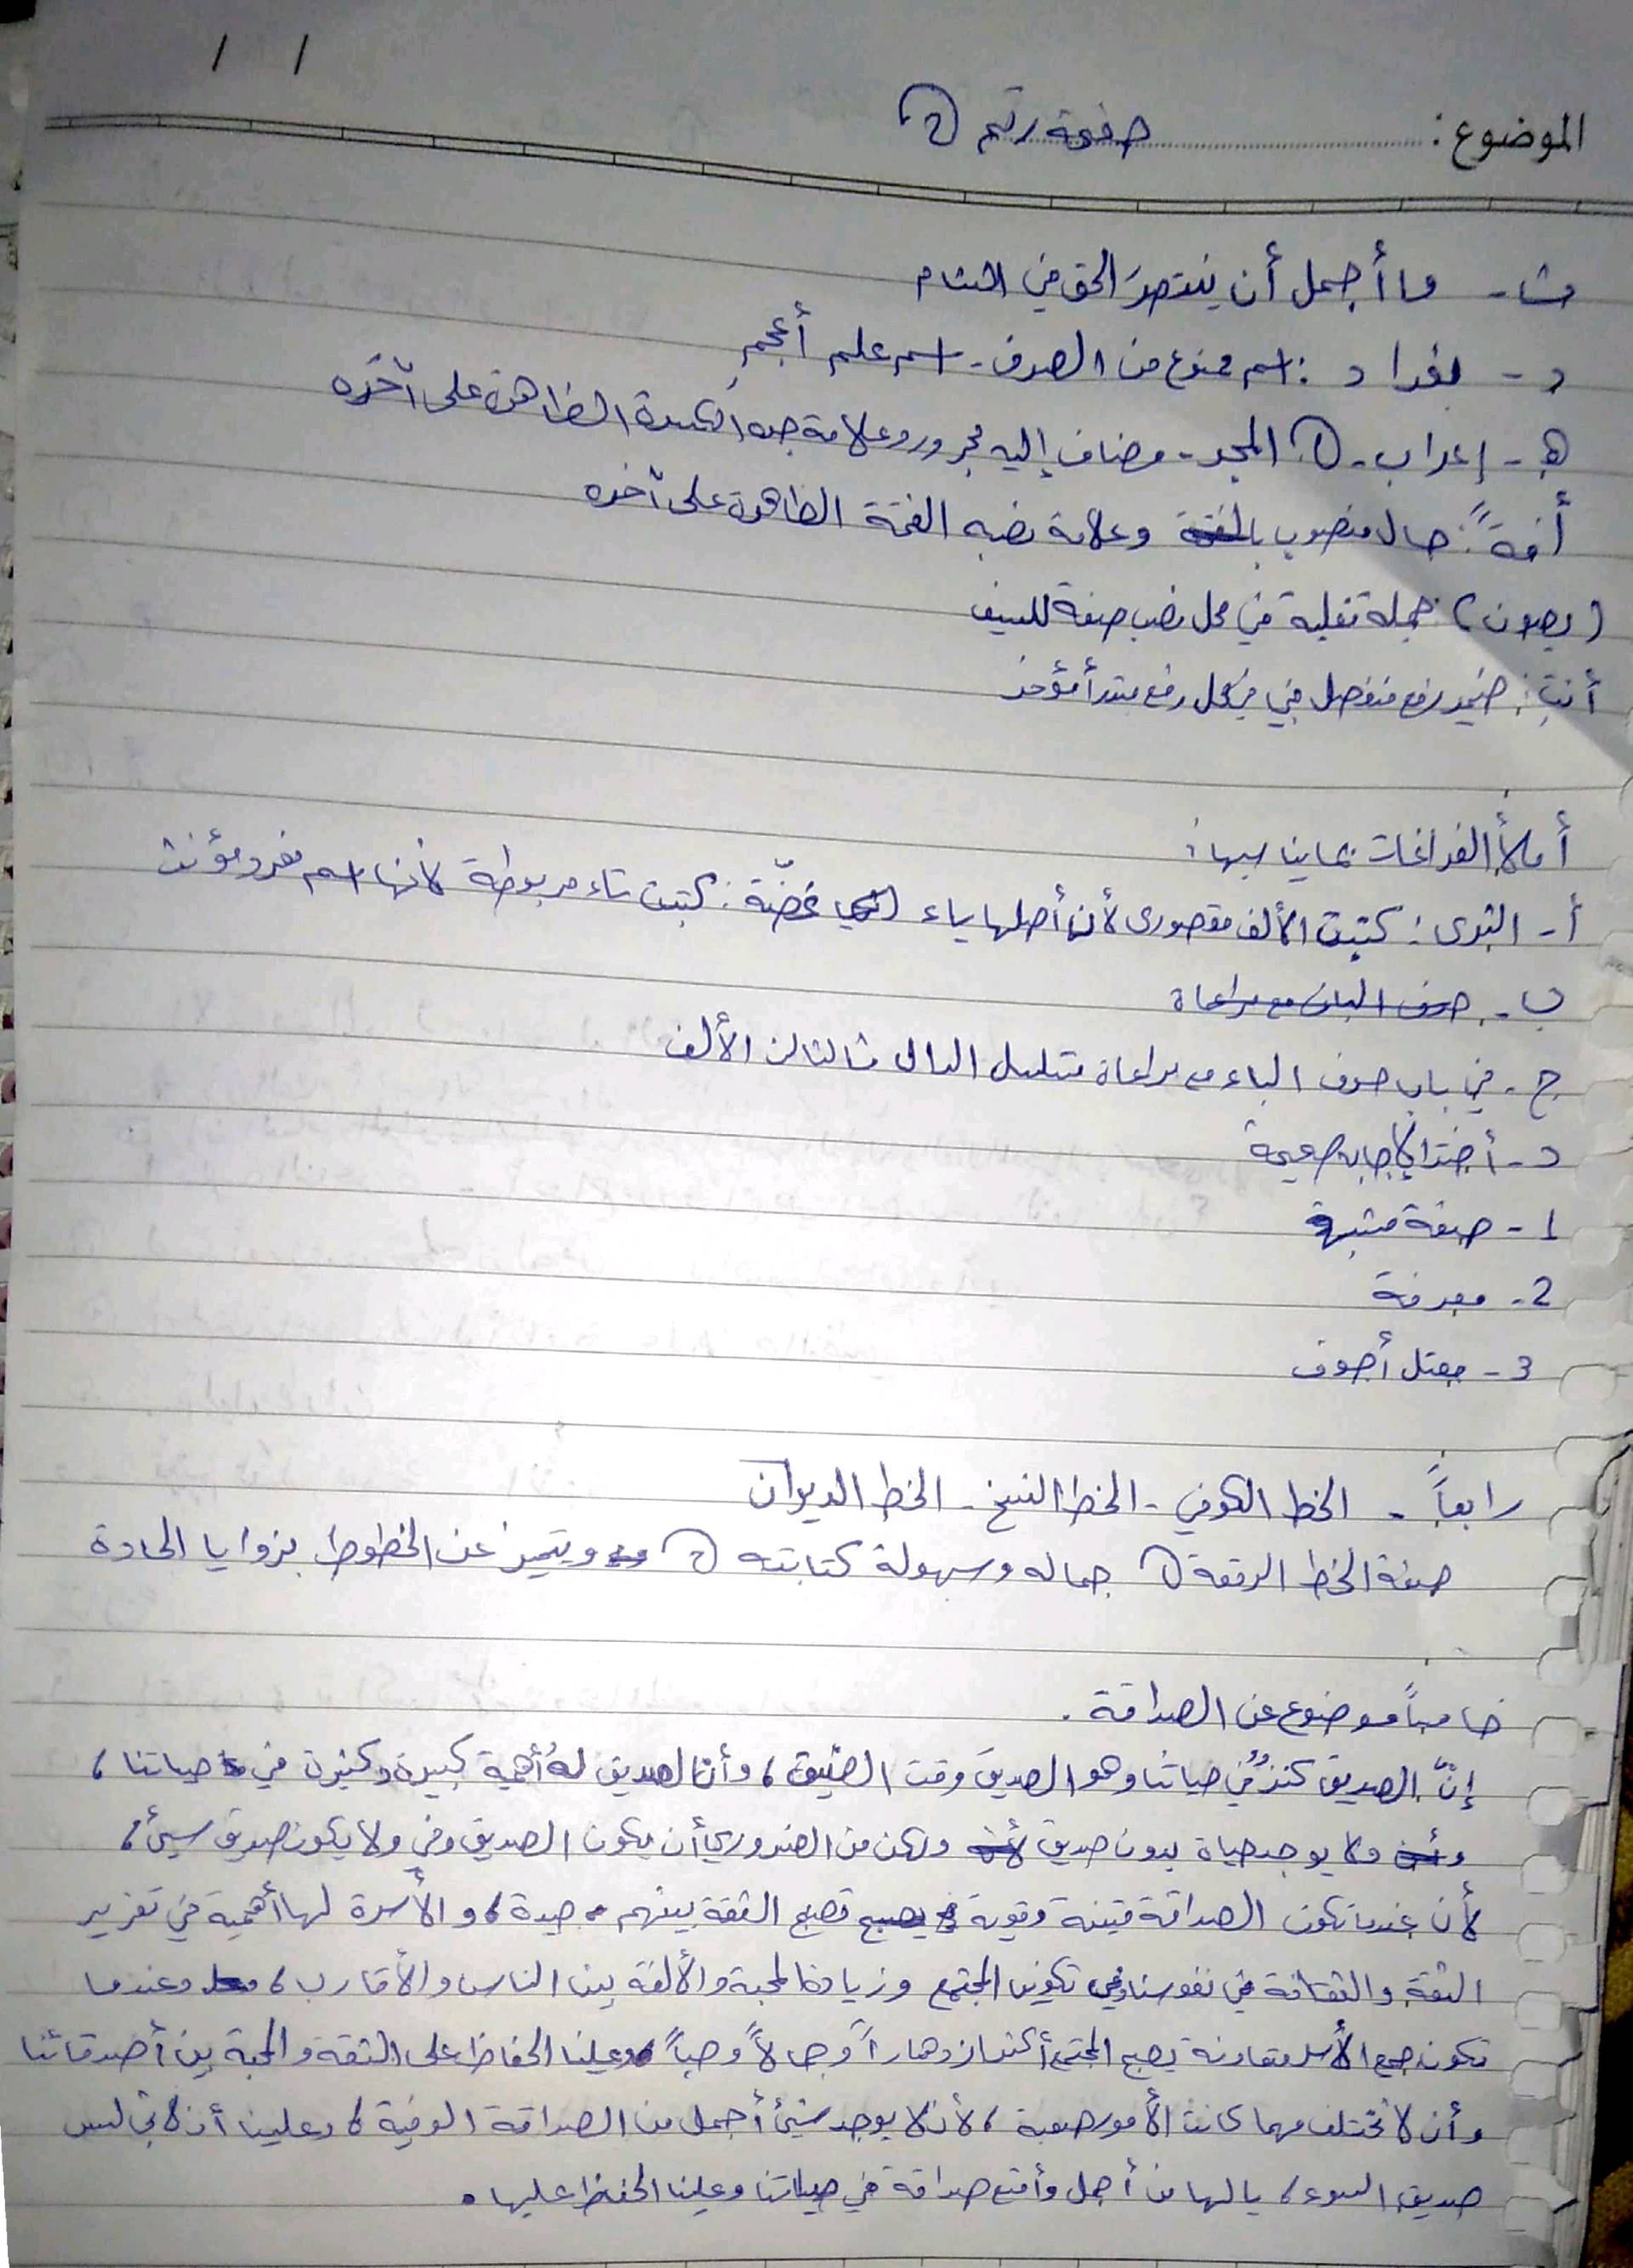 / /
الموضوع: صفحة رقم (2)
ث- ما أجمل أن ينتصرَ الحق في الشام
د- بغداد: اسم ممنوع من الصرف - اسم علم أعجمي
هـ- إعراب - (1) المجد - مضاف إليه مجرور وعلامة جره الكسرة الظاهرة على آخره
حال منصوب وعلامة نصبه الفتحة الظاهرة على آخره
(يصون) جملة فعلية في محل نصب صفة للسيف
أنتِ: ضمير رفع منفصل في محل رفع مبتدأ مؤخر
أملأ الفراغات بما يناسبها:
أ- الثرى: كتبت الألف مقصورى لأن أصلها ياء غضّة: كتبت تاء مربوطة لأنها اسم مفرد مؤنث
ب- حرف الباء مع مراعاة
ج- في باب حرف الباء مع مراعاة تسلسل الدال ثالثا الألف
د- أختر الإجابه صحيحة
1- صفة مشبهة
2- معرفة
3- معتل أجوف
رابعاً - الخط الكوفي - الخط النسخ - الخط الديوان
صفة الخط الرقعة (1) جماله وسهولة كتابته (2) ويتميز عن الخطوط بزوايا الحادة
خامساً موضوع عن الصداقة.
إنّ الصديق كنزٌ في حياتنا وهو الصديق وقت الضيق، وأن الصديق لهُ أهمية كبيرة وكثيرة في حياتنا،
ولا يوجد حياة بدون صديق ولكن من الضروري أن يكون الصديق وفي ولا يكون صديق سيئ،
لأن عندما تكون الصداقة متينة وقوية تصبح الثقة بينهم جيدة، و الأسرة لها أهمية في تعزيز
الثقة والثقافة في نفوسنا وفي تكوين المجتمع وزيادة المحبة والألفة بين الناس والأقارب، وعندما
تكون جميع الأسر متعاونة يصبح المجتمع أكثر ازدهاراً وجمالاً وحباً وعلينا الحفاظ على الثقة والمحبة بين أصدقائنا
وأن لا تختلف مهما كانت الأمور صعبة، لأن لا يوجد شيئ أجمل من الصداقة الوفية، وعلينا أن لا نجالس
صديق السوء، يا لها من أجمل وأمتع صداقة في حياتنا وعلينا الحفظ عليها.